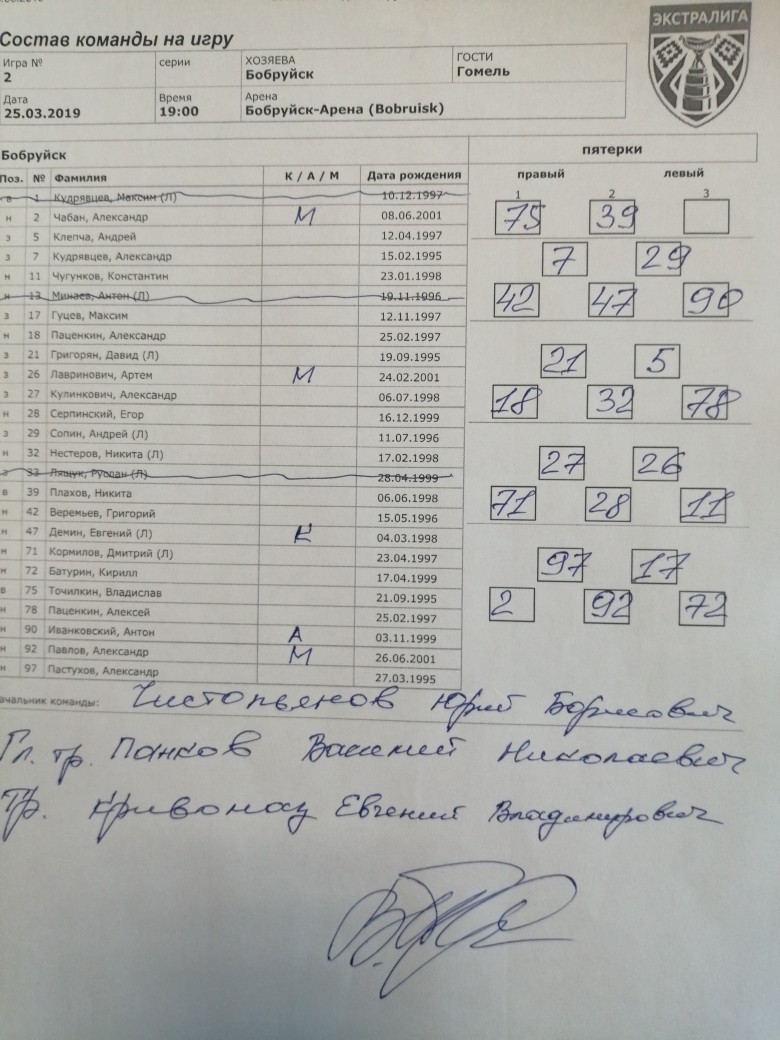 ЭКСТРАЛИГА
Состав команды на игру
Игра № серии ХОЗЯЕВА ГОСТИ
2 Бобруйск Гомель
Дата Время Арена
25.03.2019 19:00 Бобруйск-Арена (Bobruisk)
Бобруйск пятерки
Поз. № Фамилия К / А / М Дата рождения правый левый
1 2 3
в 1 Кудрявцев, Максим (Л) 10.12.1997
н 2 Чабан, Александр М 08.06.2001 75 39
з 5 Клепча, Андрей 12.04.1997
з 7 Кудрявцев, Александр 15.02.1995 7 29
н 11 Чугунков, Константин 23.01.1998
н 13 Минаев, Антон (Л) 19.11.1996 42 47 90
з 17 Гуцев, Максим 12.11.1997
н 18 Паценкин, Александр 25.02.1997
з 21 Григорян, Давид (Л) 19.09.1995 21 5
з 26 Лавринович, Артем М 24.02.2001
з 27 Кулинкович, Александр 06.07.1998 18 32 78
н 28 Серпинский, Егор 16.12.1999
з 29 Сопин, Андрей (Л) 11.07.1996
н 32 Нестеров, Никита (Л) 17.02.1998 27 26
з 33 Лящук, Руслан (Л) 28.04.1999
в 39 Плахов, Никита 06.06.1998 71 28 11
н 42 Веремьев, Григорий 15.05.1996
н 47 Демин, Евгений (Л) К 04.03.1998
н 71 Кормилов, Дмитрий (Л) 23.04.1997 97 17
н 72 Батурин, Кирилл 17.04.1999
в 75 Точилкин, Владислав 21.09.1995 2 92 72
н 78 Паценкин, Алексей 25.02.1997
н 90 Иванковский, Антон А 03.11.1999
н 92 Павлов, Александр М 26.06.2001
н 97 Пастухов, Александр 27.03.1995
ачальник команды: Чистопьянов Юрий Борисович
Гл. тр. Панков Василий Николаевич
Тр. Кривоназ Евгений Владимирович